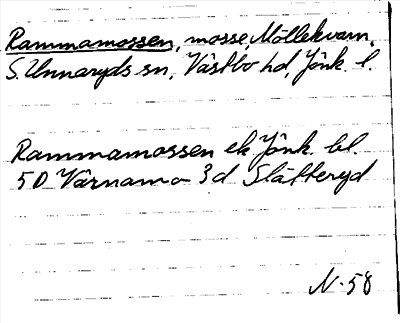 Rammamossen, mosse, Möllekvarn,
S. Unnaryds sn, Västbo hd, Jönk. l.
Rammamossen ek Jönk. bl.
5D Värnamo 3d Slätteryd
N-58